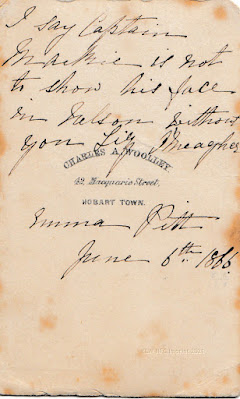 I say Captain
Mackie is not
to show his face
in Nelson without
you Lily Meagher
CHARLES A. WOOLLEY.
42, Macquarie Street,
HOBART TOWN.
Emma Pitt
June 6th 1866